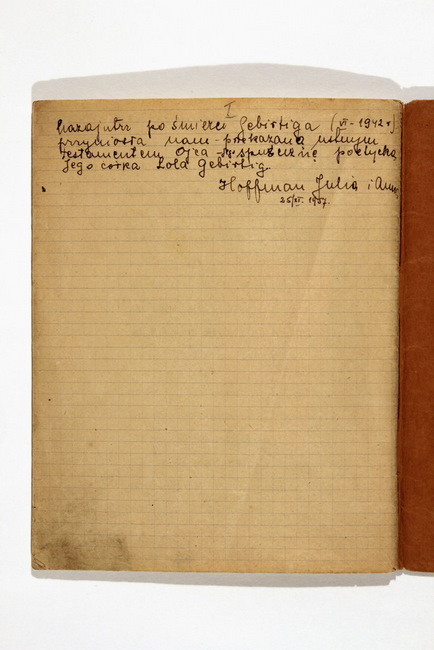 I
Nazajutrz po śmierci Gebirtiga (VI - 1942 r.)
przyniosła nam - przekazaną ustnym
testamentem Ojca - spuściznę poetycką
Jego córka Lola Gebirtig.
Hoffman Julia i Anna
25/XI. 1957.